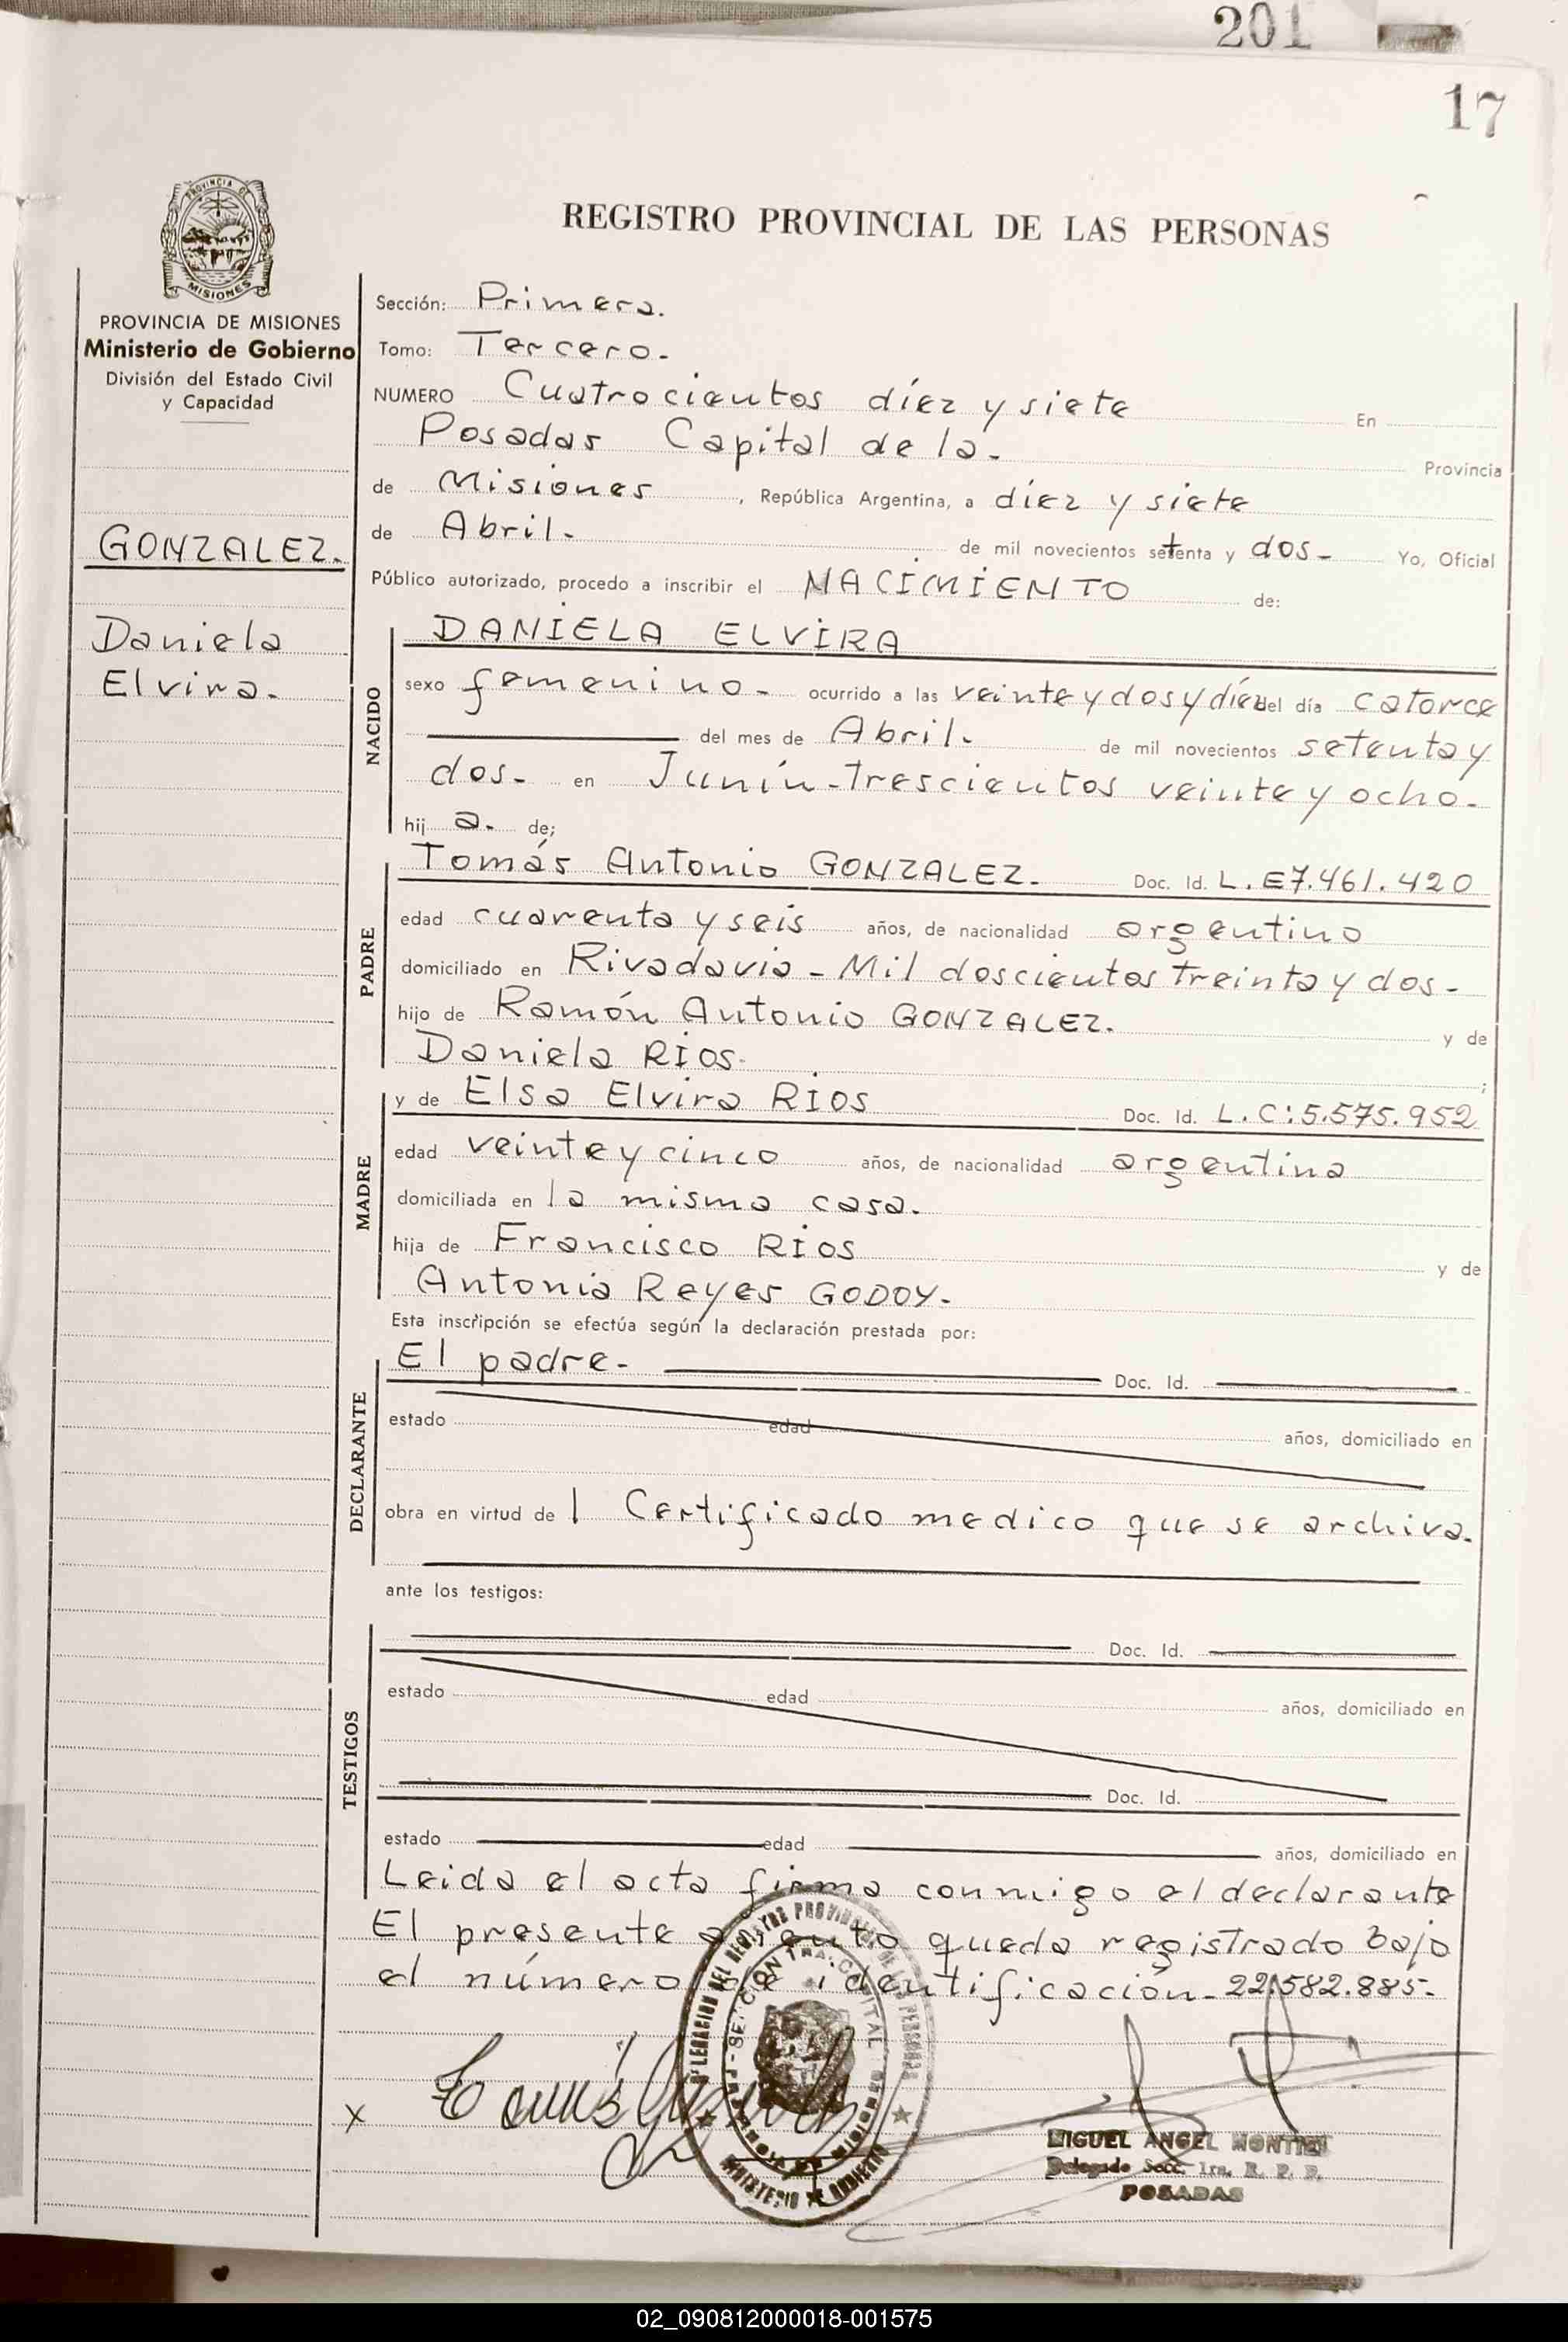 201
17
PROVINCIA DE
MISIONES
REGISTRO PROVINCIAL DE LAS PERSONAS
PROVINCIA DE MISIONES
Ministerio de Gobierno
División del Estado Civil
y Capacidad
GONZALEZ.
Daniela
Elvira.
Sección: Primera.
Tomo: Tercero.
NUMERO Cuatrocientos díez y siete En
Posadas Capital de la. Provincia
de Misiones, República Argentina, a díez y siete
de Abril. de mil novecientos setenta y dos. Yo, Oficial
Público autorizado, procedo a inscribir el NACIMIENTO de:
NACIDO
DANIELA ELVIRA
sexo femenino. ocurrido a las veinte y dos y díez del día catorce
del mes de Abril. de mil novecientos setenta y
dos. en Junín-Trescientos veinte y ocho.
hij a. de;
PADRE
Tomás Antonio GONZALEZ. Doc. Id. L.E7.461.420
edad cuarenta y seis años, de nacionalidad argentino
domiciliado en Rivadavia - Mil doscientos treinta y dos.
hijo de Ramón Antonio GONZALEZ. y de
Daniela RIOS. ;
MADRE
y de Elsa Elvira RIOS Doc. Id. L.C:5.575.952
edad veinte y cinco años, de nacionalidad argentina
domiciliada en la misma casa.
hija de Francisco RIOS y de
Antonia Reyes GODOY.
Esta inscripción se efectúa según la declaración prestada por:
DECLARANTE
El padre. Doc. Id.
estado edad años, domiciliado en
obra en virtud de 1 Certificado medico que se archiva.
ante los testigos:
TESTIGOS
Doc. Id.
estado edad años, domiciliado en
Doc. Id.
estado edad años, domiciliado en
Leida el acta firma conmigo el declarante
El presente asento queda registrado bajo
el número de identificación - 22.582.885.
x
MIGUEL ANGEL MONTIEL
Delegado Secc. 1ra. R. P. P.
POSADAS
02_090812000018-001575